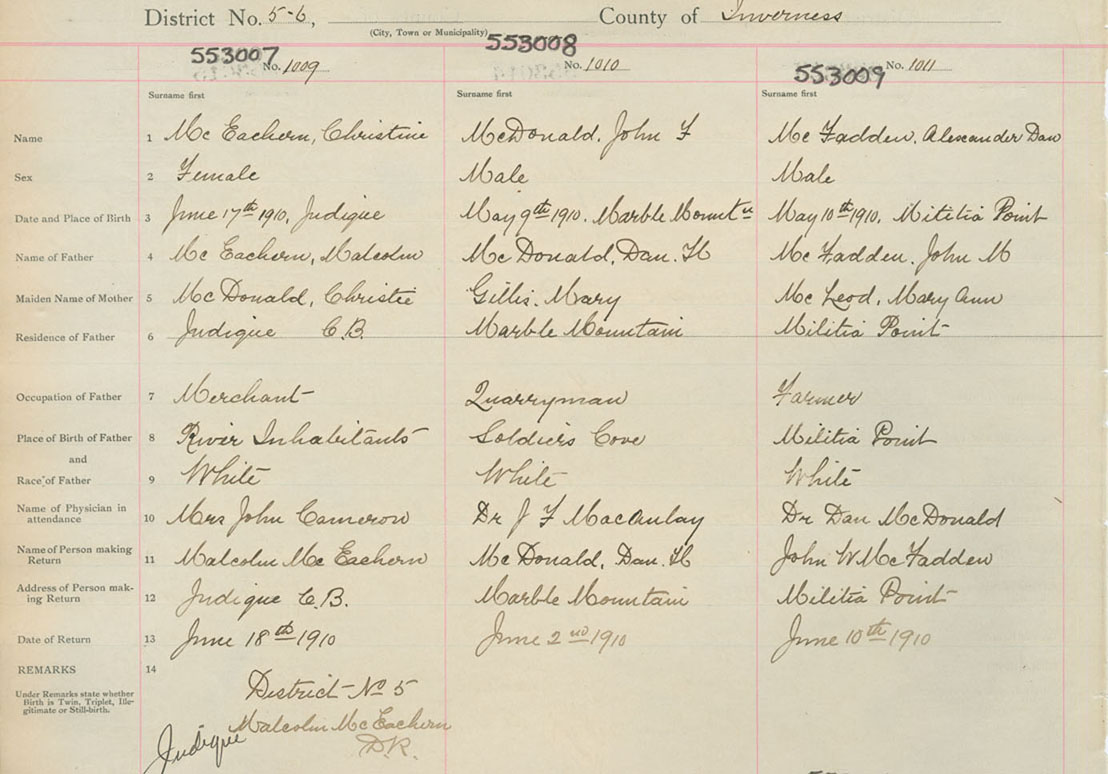 District No. 5-6, County of Inverness
(City, Town or Municipality)
553007 No. 1009 553008 No. 1010 553009 No. 1011
Surname first Surname first Surname first
Name 1 Mc Eachern, Christine McDonald, John F Mc Fadden, Alexander Dan
Sex 2 Female Male Male
Date and Place of Birth 3 June 17th 1910, Judique May 9th 1910. Marble Mountn May 10th 1910, Mititia Point
Name of Father 4 Mc Eachern, Malcolm Mc Donald, Dan. H Mc Fadden. John M
Maiden Name of Mother 5 Mc Donald, Christie Gillis. Mary Mc Leod, Mary Ann
Residence of Father 6 Judique C.B. Marble Mountain Militia Point
Occupation of Father 7 Merchant Quarryman Farmer
Place of Birth of Father 8 River Inhabitants Soldiers Cove Militia Point
and
Race of Father 9 White White White
Name of Physician in attendance 10 Mrs John Cameron Dr J F Macaulay Dr Dan McDonald
Name of Person making Return 11 Malcolm Mc Eachern Mc Donald, Dan. H John W McFadden
Address of Person making Return 12 Judique C.B. Marble Mountain Militia Point
Date of Return 13 June 18th 1910 June 2nd 1910 June 10th 1910
REMARKS 14
Under Remarks state whether
Birth is Twin, Triplet, Ille-
gitimate or Still-birth.
District No 5
Malcolm Mc Eachern
D.R.
Judique